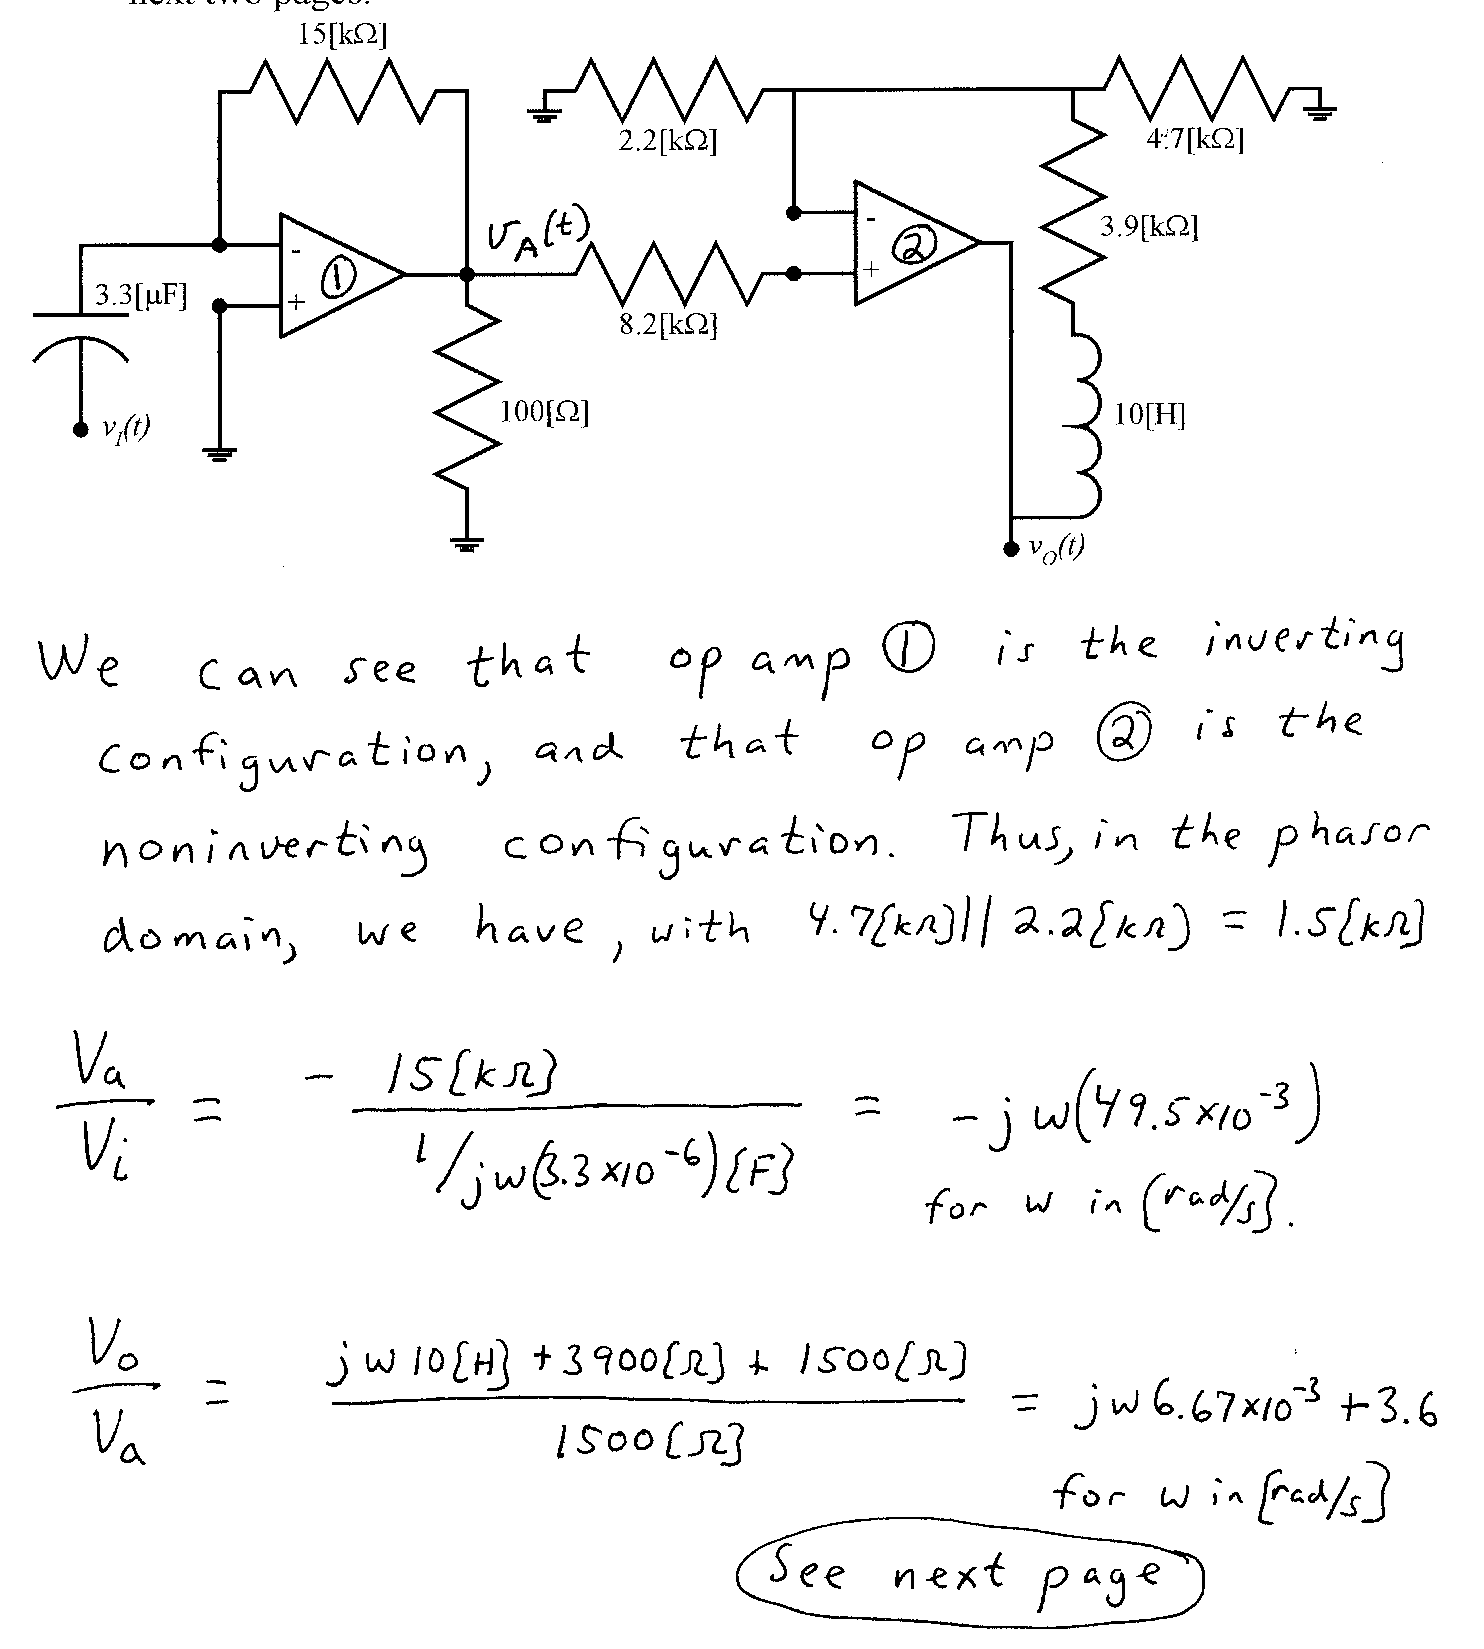 next two pages.
15[kΩ]
2.2[kΩ]
4.7[kΩ]
3.9[kΩ]
v_A(t)
3.3[μF]
-
+
①
8.2[kΩ]
-
+
②
100[Ω]
10[H]
v_I(t)
v_O(t)
We can see that op amp ① is the inverting
configuration, and that op amp ② is the
noninverting configuration. Thus, in the phasor
domain, we have, with 4.7[kΩ]||2.2[kΩ] = 1.5[kΩ]
Va/Vi = - 15[kΩ] / (1/jω(3.3×10^-6)[F]) = -jω(49.5×10^-3)
for ω in [rad/s].
Vo/Va = (jω10[H] + 3900[Ω] + 1500[Ω]) / 1500[Ω] = jω6.67×10^-3 + 3.6
for ω in [rad/s]
See next page